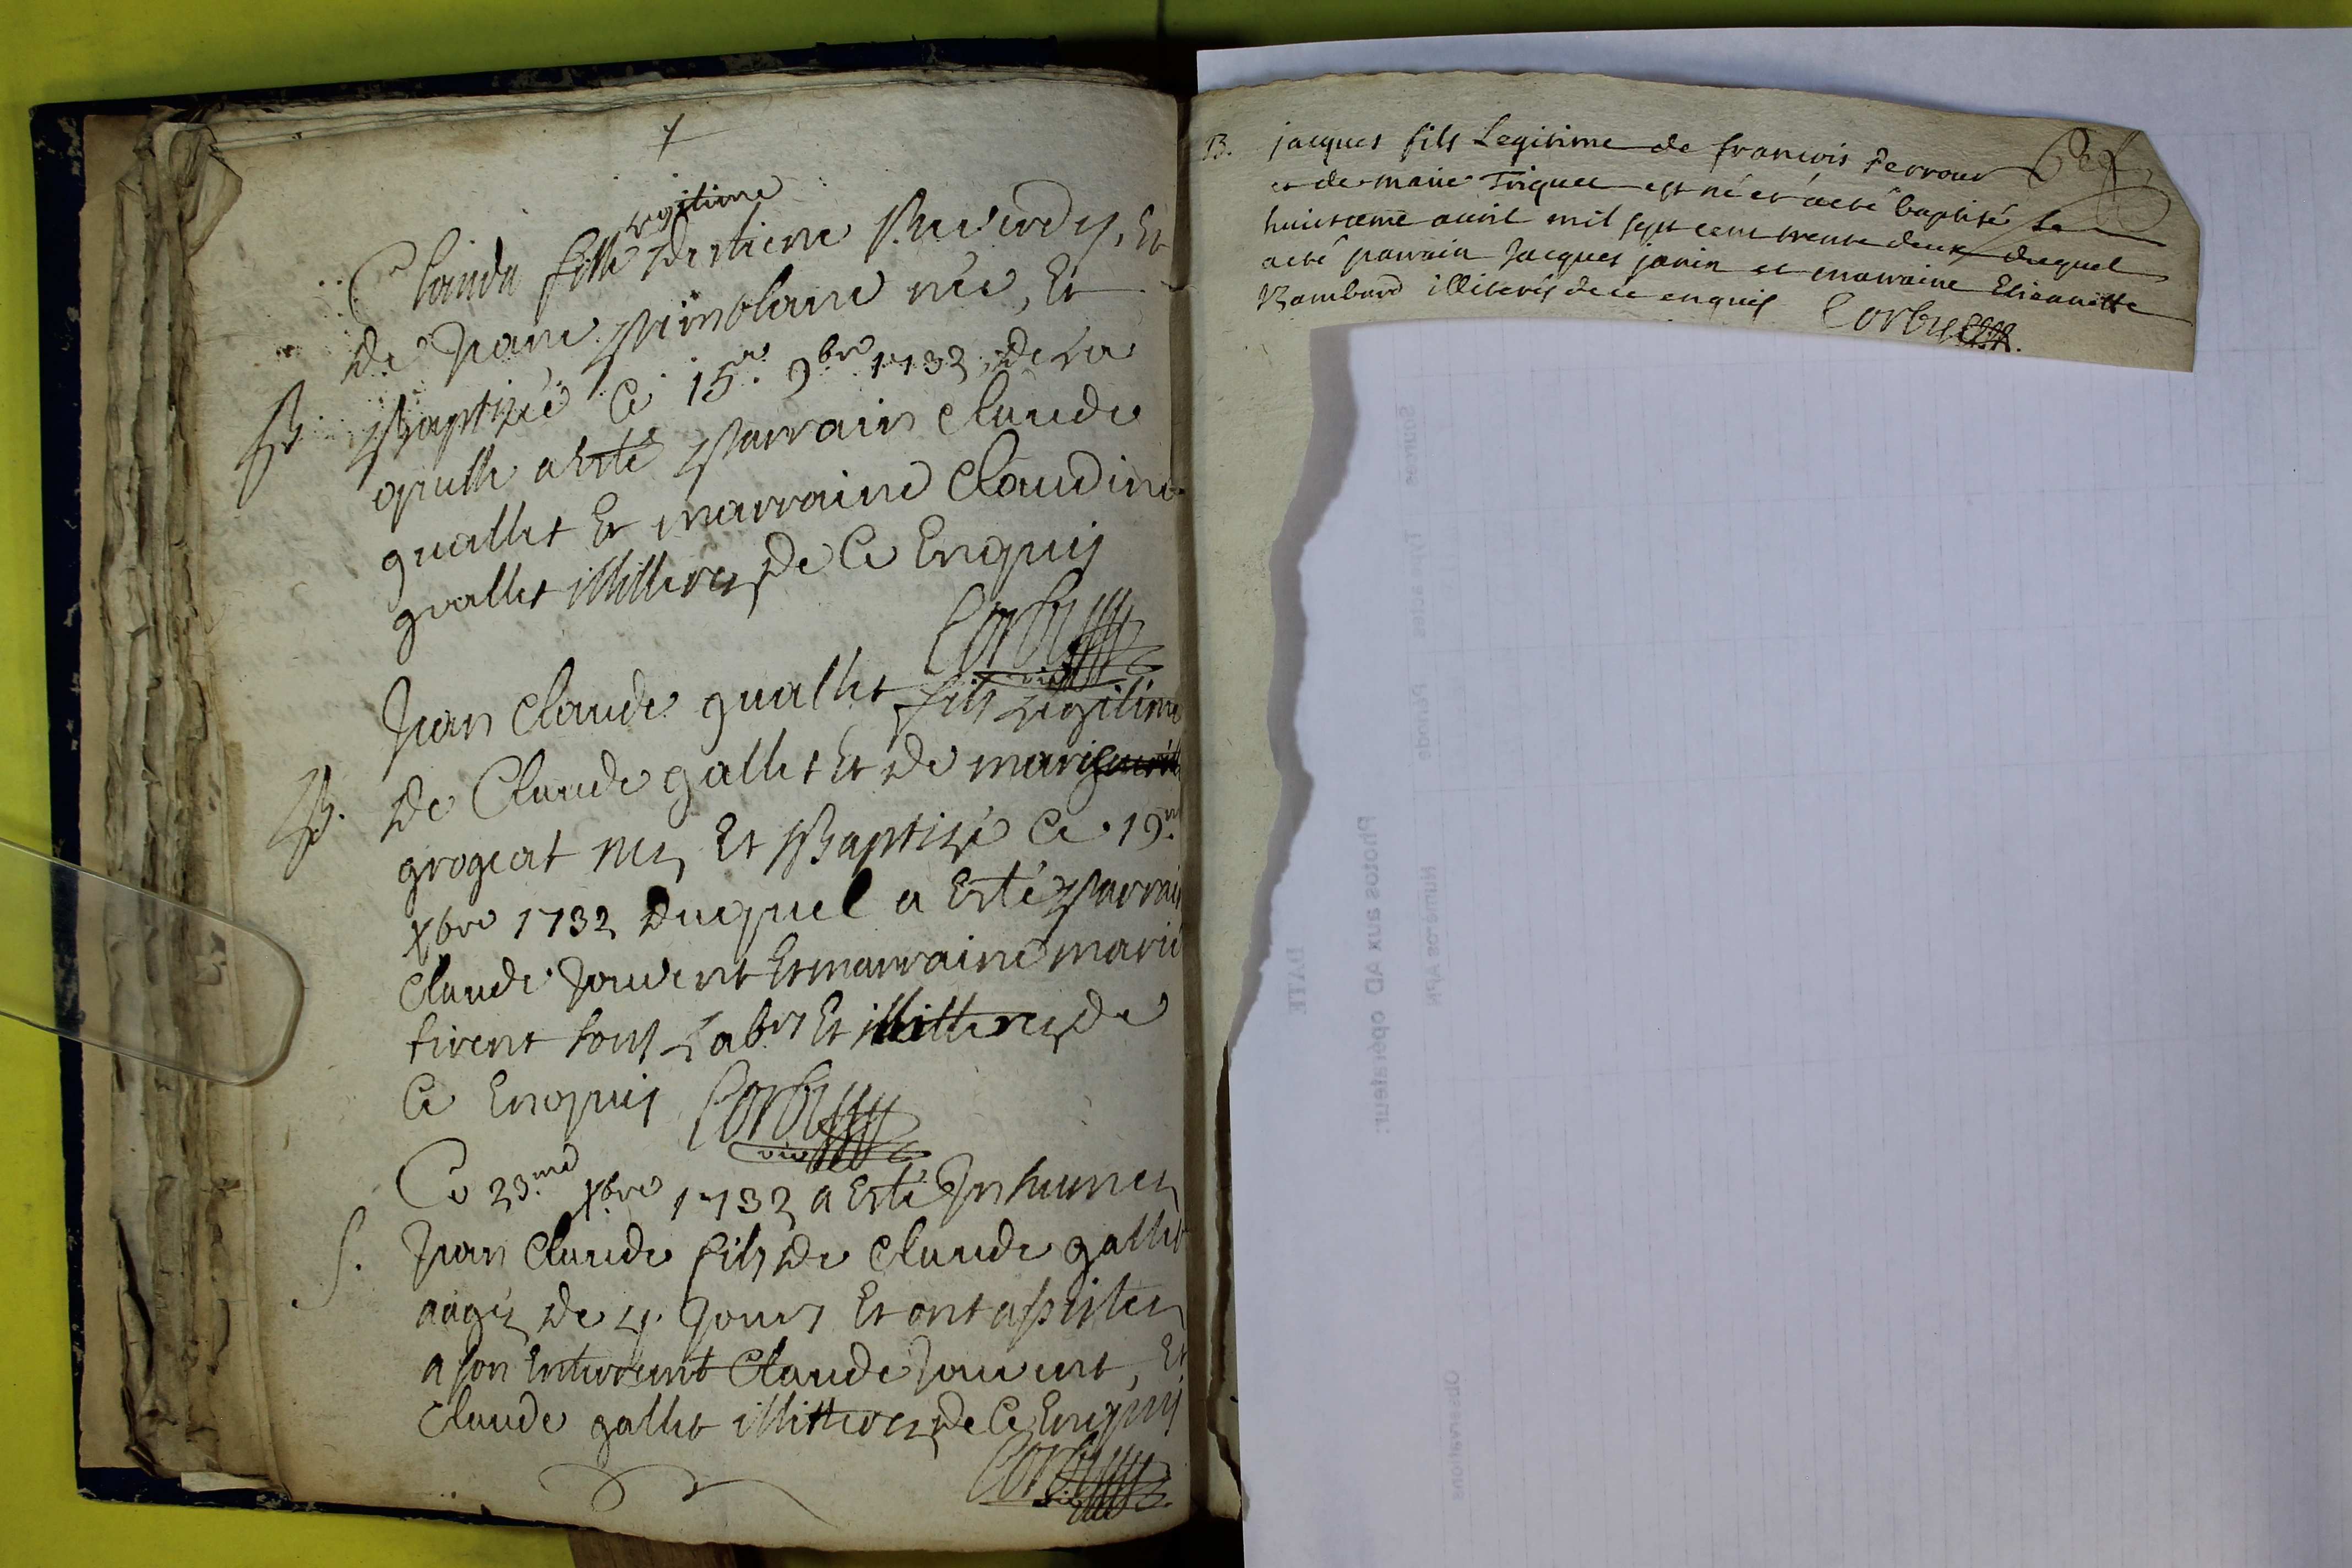 legitime
Claude fille d'estiene Reverdy, Et
de Jeane Pinoblanc née, Et
B. Baptizée Ce 15.e 9bre 1732 de la
quelle a esté Parrain Claude
guallet Et marraine Claudine
guallet illitteres de Ce Enquis
Corby
vic
Jean Claude guallet fils Legitime
B. de Claude gallet Et de marie
grogeat né Et Baptizé Ce 19.e
Xbre 1732 duquel a Esté Parrain
Claude Jouvent Et marraine marie
tirent tous Labrs Et illitteres de
Ce Enquis Corby
vic
Ce 23.me Xbre 1732 a Esté Inhumez
S. Jean Claude fils de Claude gallet
aagez de 4. Jours Et ont assistez
a son Enterrement Claude Jouvent, Et
Claude gallet illitteres de Ce Enquis
Corby
B. jacques fils Legitime de francois Perroud
et de marie Triquet est né et a eté baptisé le
huitieme avril mil sept cent trente deux duquel
a eté parrain Jacques janin et marraine Etienette
Bambard illiterés de ce enquis Corby
Photos aux AD opérateur:
DATE
Numéros APN
Période
Observations